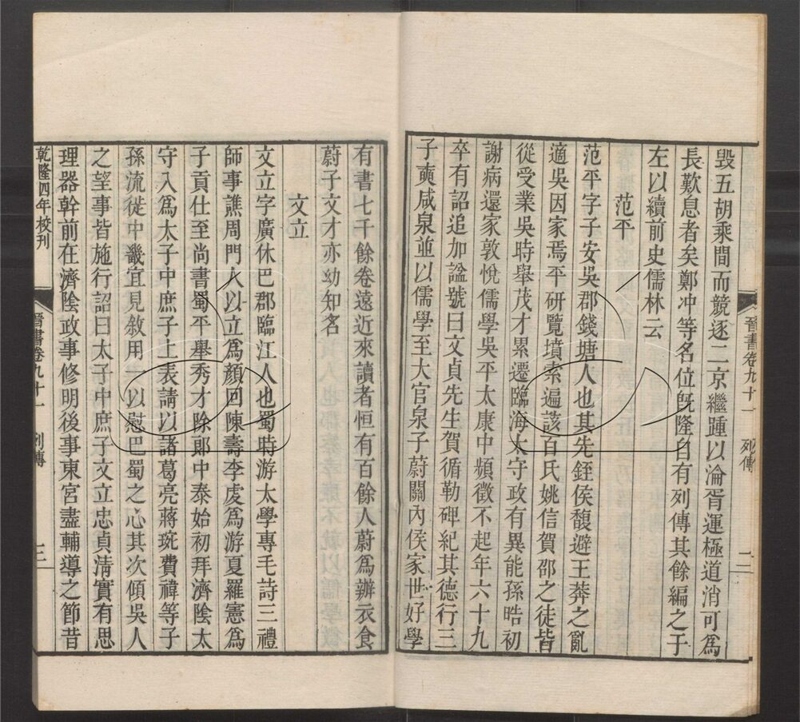 毀五胡乘間而競逐二京繼踵以淪胥運極道消可爲
長歎息者矣鄭冲等名位旣隆自有列傳其餘編之于
左以續前史儒林云
范平
范平字子安吳郡錢塘人也其先銍侯馥避王莽之亂
適吳因家焉平硏覽墳索遍該百氏姚信賀邵之徒皆
從受業吳時舉茂才累遷臨海太守政有異能孫晧初
謝病還家敦悅儒學吳平太康中頻徵不起年六十九
卒有詔追加諡號曰文貞先生賀循勒碑紀其德行三
子奭咸泉並以儒學至大官泉子蔚關內侯家世好學
晉書卷九十一 列傳 二
有書七千餘卷遠近來讀者恒有百餘人蔚爲辦衣食
蔚子文才亦幼知名
文立
文立字廣休巴郡臨江人也蜀時游太學專毛詩三禮
師事譙周門人以立爲顏回陳壽李虔爲游夏羅憲爲
子貢仕至尚書蜀平舉秀才除郞中泰始初拜濟陰太
守入爲太子中庶子上表請以諸葛亮蔣琬費禕等子
孫流徙中畿宜見敘用一以慰巴蜀之心其次傾吳人
之望事皆施行詔曰太子中庶子文立忠貞淸實有思
理器幹前在濟陰政事修明後事東宮盡輔導之節昔
乾隆四年校刊 晉書卷九十一 列傳 三